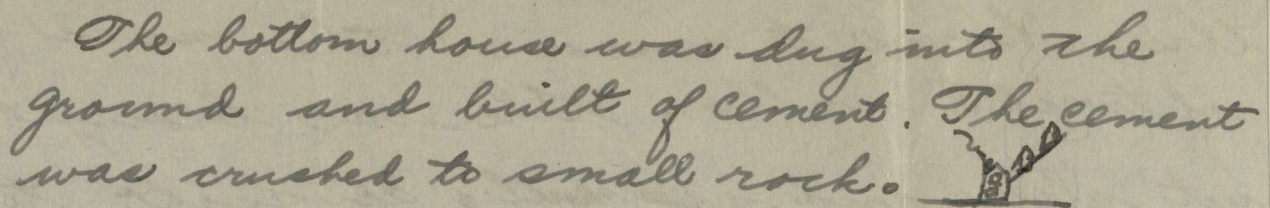 The bottom house was dug into the
ground and built of cement. The cement
was crushed to small rock.